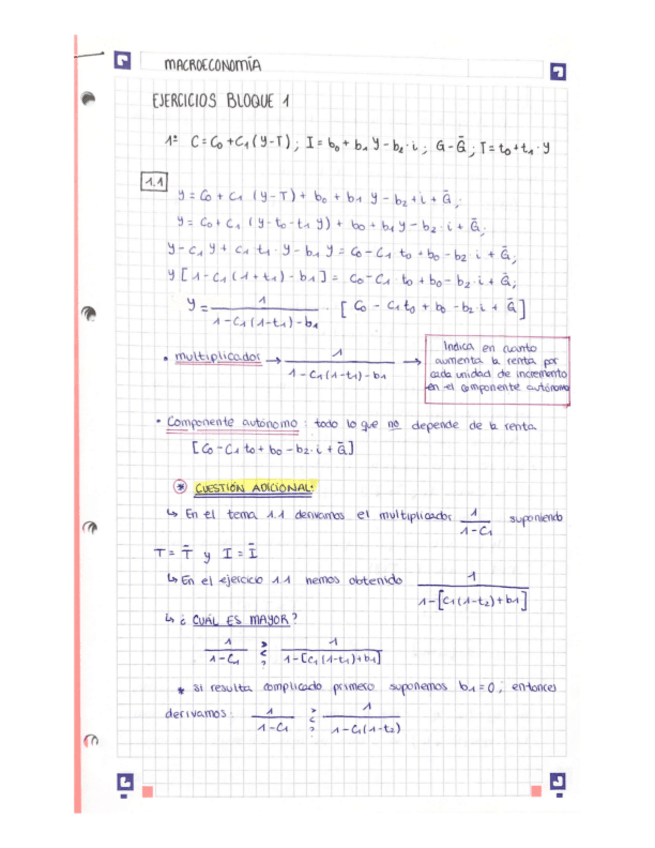 MACROECONOMÍA
EJERCICIOS BLOQUE 1
1º C = C₀ + C₁ (Y-T) ; I = b₀ + b₁ Y - b₂ · i ; G - Ḡ ; T = t₀ + t₁ · Y
1.1
Y = C₀ + C₁ (Y-T) + b₀ + b₁ Y - b₂ + i + Ḡ ;
Y = C₀ + C₁ (Y - t₀ - t₁ Y) + b₀ + b₁ Y - b₂ · i + Ḡ ;
Y - C₁ Y + C₁ t₁ · Y - b₁ Y = C₀ - C₁ t₀ + b₀ - b₂ i + Ḡ ;
Y [1 - C₁ (1 + t₁) - b₁] = C₀ - C₁ t₀ + b₀ - b₂ · i + Ḡ ;
Y = 1 / 1 - C₁ (1 - t₁) - b₁ · [C₀ - C₁ t₀ + b₀ - b₂ · i + Ḡ]
• multiplicador → 1 / 1 - C₁ (1 - t₁) - b₁ →
Indica en cuanto
aumenta la renta por
cada unidad de incremento
en el componente autónomo
• Componente autónomo : todo lo que no depende de la renta
[C₀ - C₁ t₀ + b₀ - b₂ · i + Ḡ]
* CUESTIÓN ADICIONAL:
↳ En el tema 1.1 derivamos el multiplicador 1 / 1 - C₁ suponiendo
T = T̄ y I = Ī
↳ En el ejercicio 1.1 hemos obtenido 1 / 1 - [C₁ (1 - t₂) + b₁]
↳ ¿ CUÁL ES MAYOR ?
1 / 1 - C₁ > < ? 1 / 1 - [C₁ (1 - t₁) + b₁]
* si resulta complicado primero suponemos b₁ = 0 ; entonces
derivamos : 1 / 1 - C₁ > < ? 1 / 1 - C₁ (1 - t₂)